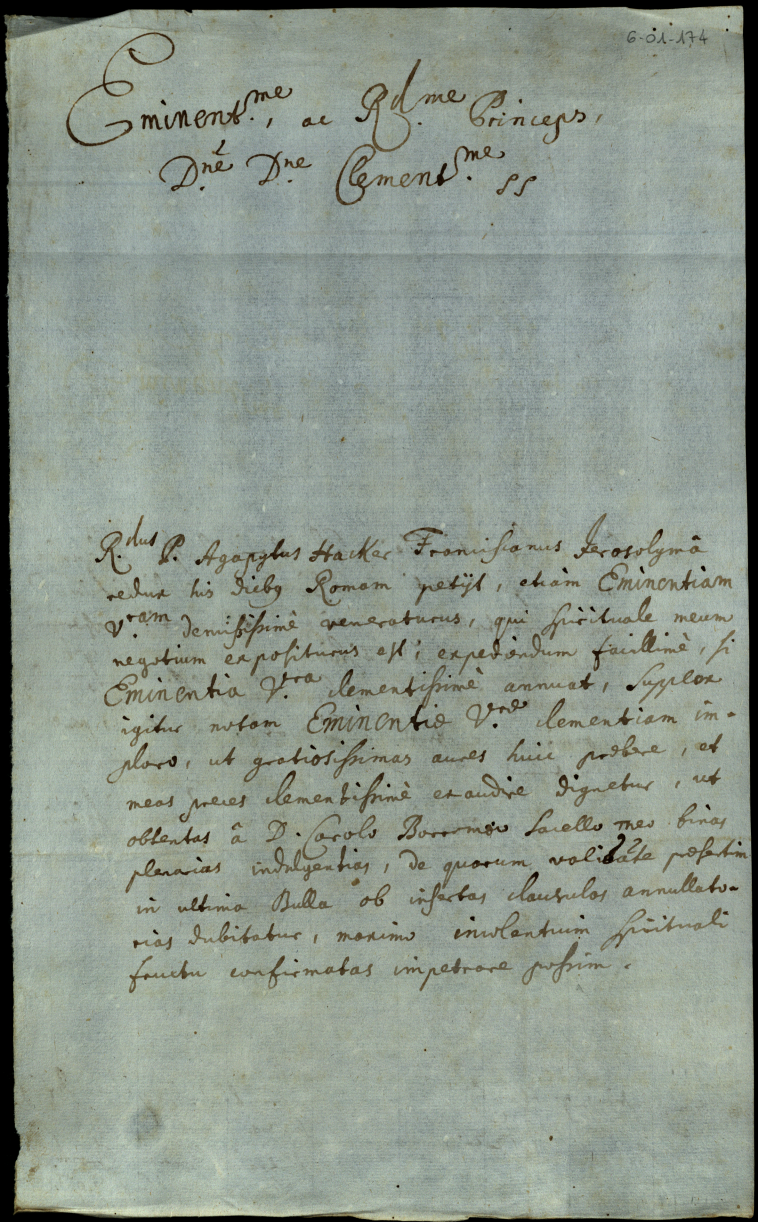 6-01-174
Eminent.me, ac Rd.me Princeps,
D.ne D.ne Clement.me SS
R.dus P. Agapytus Hacker Franciscanus Jerosolymâ
redux his dieby Romam petijt, etiàm Eminentiam
V.ram demississimè veneraturus, qui spirituale meum
negotium expositurus est; expediendum facillimè, si
Eminentia V.ra clementissimè annuat, supplex
igitur notam Eminentiæ V.ræ clementiam im=
ploro, ut gratiosissimas aures huic præbere, et
meas preces clementissimè exaudire dignetur, ut
obtentas â D. Carolo Borromæo sacello meo binas
plenarias indulgentias, de quarum validitate præsertim
in ultima Bulla ob insertas clausulas annullato=
rias dubitatur, maximo incolantium spirituali
fructu confirmatas impetrare possim.